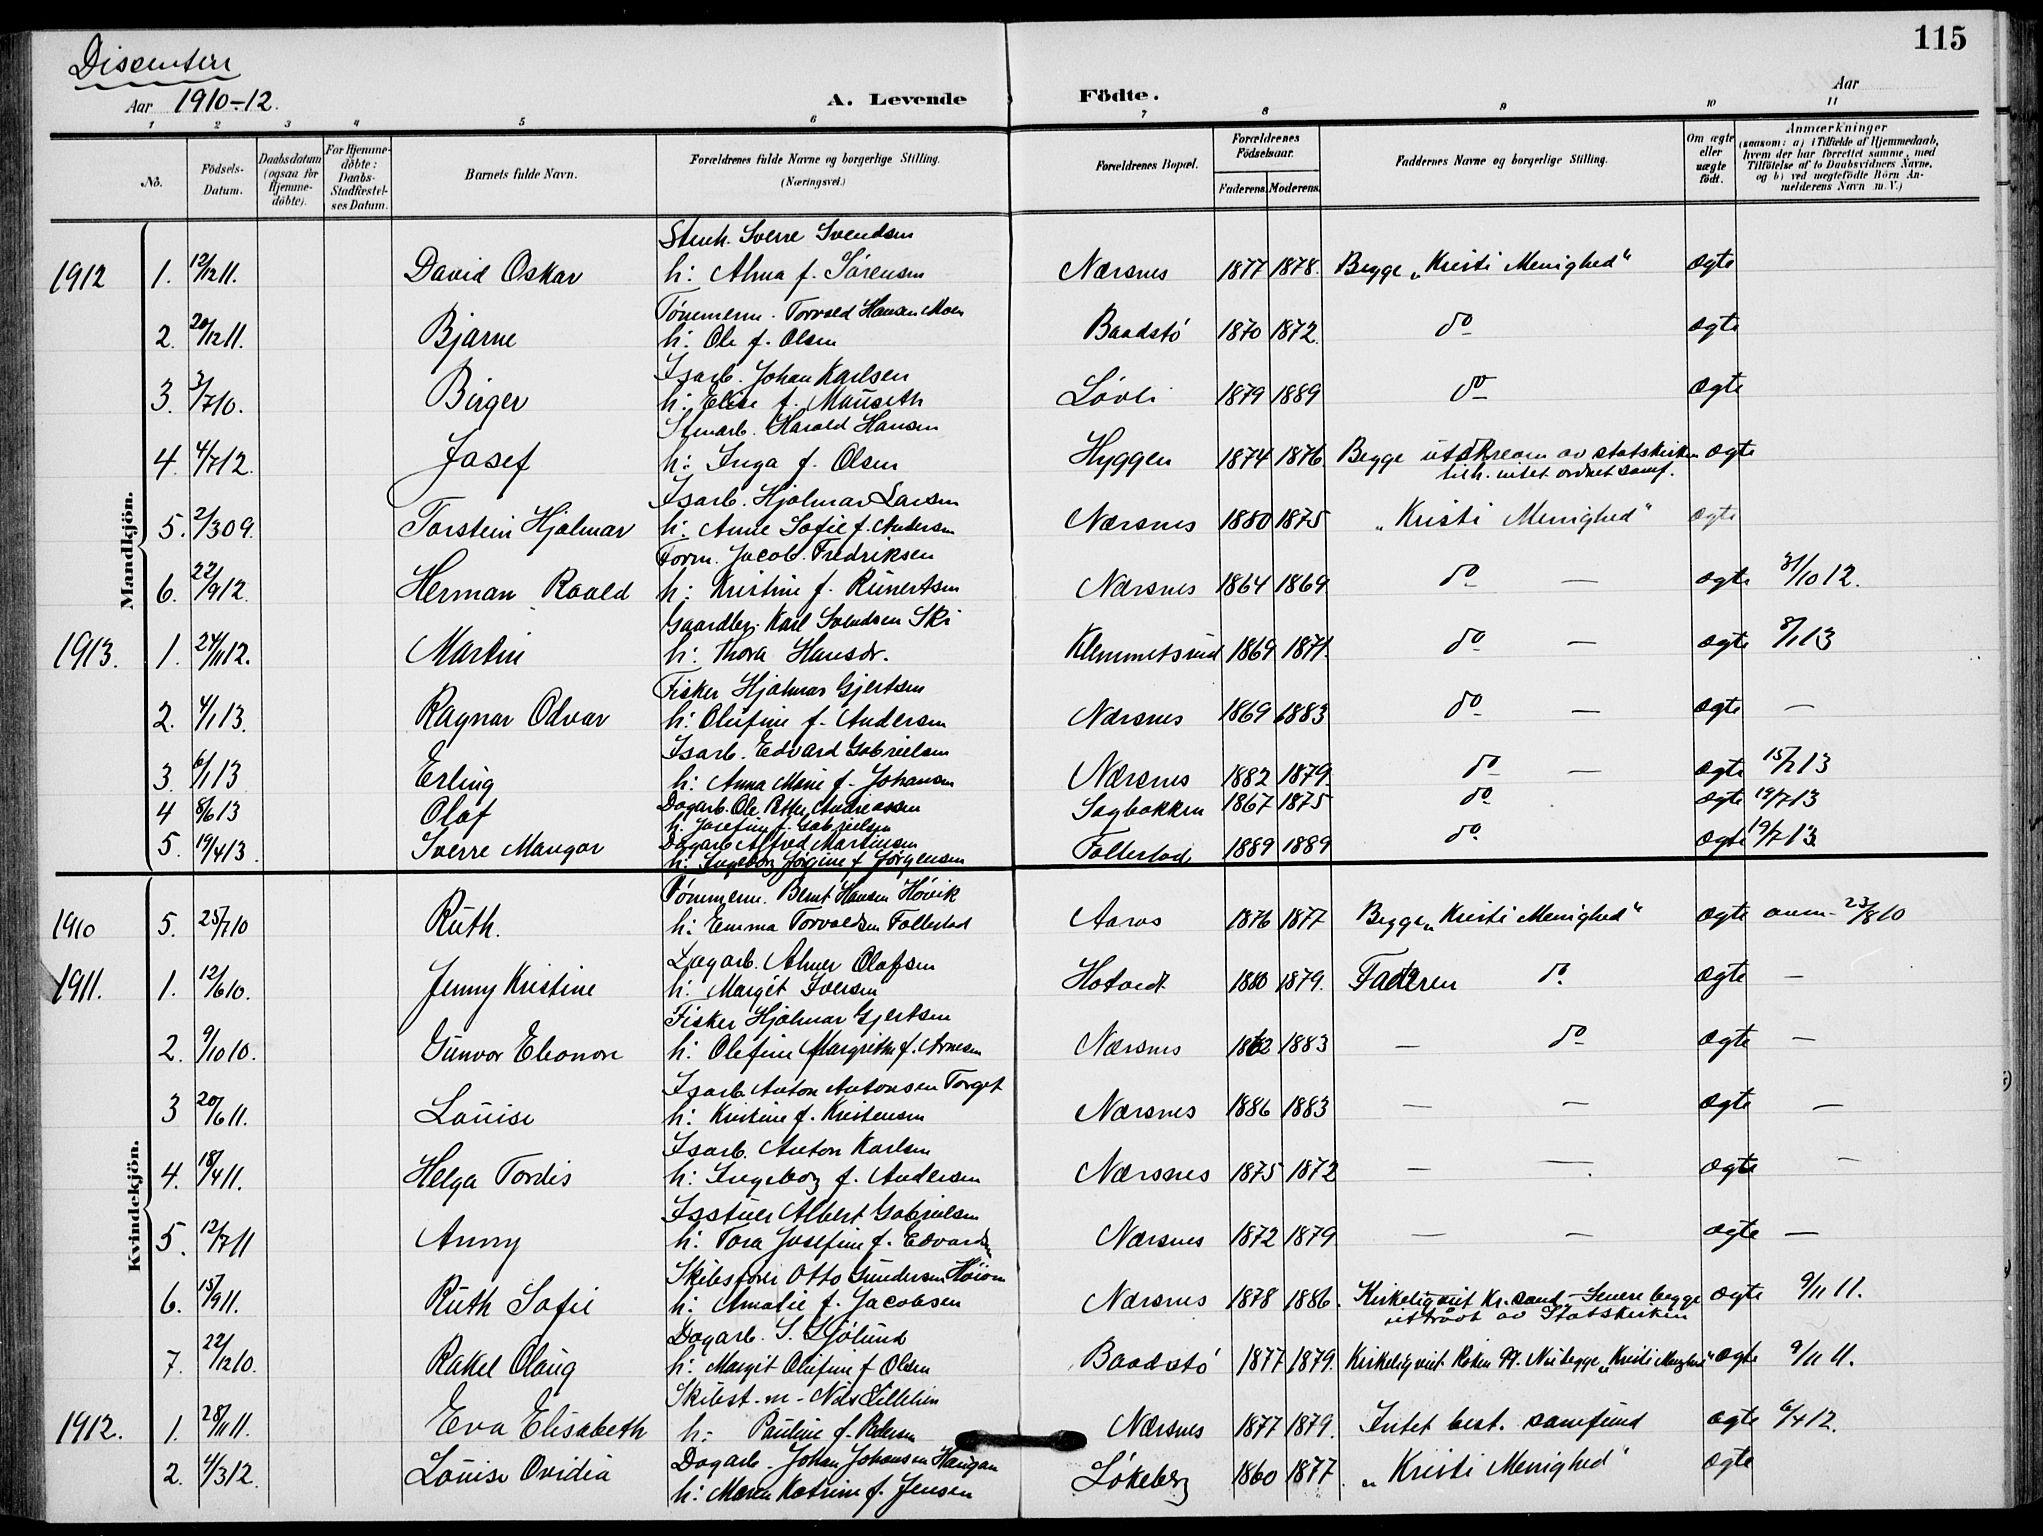 115
Disentere
Aar 1910-12.
A. Levende Födte.
Aar
1 2 3 4 5 6 7 8 9 10 11
No.
Födsels-Datum.
Daabsdatum (ogsaa for Hjemme-döbte).
For Hjemme-döbte: Daabs-Stadfæstel-ses Datum.
Barnets fulde Navn.
Forældrenes fulde Navne og borgerlige Stilling. (Næringsvei.)
Forældrenes Bopæl.
Forældrenes Födselsaar.
Faderens. Moderens.
Faddernes Navne og borgerlige Stilling.
Om ægte eller uægte födt.
Anmærkninger
(saasom: a) i Tilfælde af Hjemmedaab, hvem der har forrettet samme, med Tilföielse af to Daabsvidners Navne, og b) ved uægtefödte Börn An-melderens Navn m. V.)
Mandkjön.
Stenh. Sverre Svendsen
1912 1. 12/12 11. David Oskar h: Alma f. Sørensen Nærsnes 1877 1878. Begge „Kristi Menighed" ægte
Tømmerm. Torvald Hansen Moen
2. 20/12 11. Bjarne h: Ole f. Olsen Baadstö 1870 1872. do ægte
Isarb. Johan Karlsen
3. 3/7 10. Birger h: Elise f. Mauseth Løvli 1879 1889 do ægte
Stenarb. Harald Hansen
4. 4/7 12. Josef h: Inga f. Olsen Hyggen 1874 1876 Begge utskreven av statskirken ægte
tilh. intet ordnet samf.
Isarb. Hjalmar Larsen
5. 2/3 09. Torstein Hjalmar h: Anne Sofie f. Andersen Nærsnes 1880 1875 „Kristi Menighed" ægte
Form. Jacob Fredriksen
6. 22/9 12. Herman Roald h: Kristine f. Runertsen Nærsnes 1864 1869 do — ægte 31/10 12.
Gaardbr. Karl Svendsen Ski
1913. 1. 24/11 12. Martin h: Thora Hansdr. Klemmetsrud 1869 1871. do — ægte 8/1 13
Fisker Hjalmar Gjertsen
2. 4/1 13. Ragnar Odvar h: Olufine f. Andersen Nærsnes 1869 1883 do — ægte —
Isarb. Edvard Gabrielsen
3. 6/1 13 Erling h: Anna Marie f. Johansen Nærsnes 1882 1879. do — ægte 15/2 13
Dagarb. Ole Petter Andreassen
4 8/6 13 Olaf h: Josefine f. Gabrielsen Sagbakken 1867 1875 do ægte 19/7 13
Dagarb. Alfred Martinsen
5. 19/4 13. Sverre Mangor h: Ingeborg Jørgine f. Jørgensen Follestad 1889 1889 do ægte 19/7 13
Kvindekjön.
Tømmerm. Bernt Hansen Høvik
1910 5. 25/7 10 Ruth. h: Emma Torvaldsen Follestad Aaros 1876 1877 Begge „Kristi Menighed" ægte anm. 23/8 10
Dagarb. Almer Olafsen
1911. 1. 12/6 10. Jenny Kristine h: Margit Iversen Hotvedt 1880 1879. Faderen do ægte —
Fisker Hjalmar Gjertsen
2. 9/10 10. Gunvor Eleonore h: Olefine Margrethe f. Arnesen Nærsnes 1883 — do ægte —
Isarb. Anton Antonsen Torget
3 20/6 11. Louise h: Kristine f. Kristensen Nærsnes 1886 1883 — — ægte —
Isarb. Anton Karlsen
4. 18/4 11. Helga Tordis h: Ingeborg f. Andersen Nærsnes 1875 1872 — — ægte —
Isstuer Albert Gabrielsen
5. 12/7 11 Anny h: Tora Josefine f. Edvardsen Nærsnes 1872 1879 — — ægte —
Skibsfører Otto Gundersen
6. 15/9 11. Ruth Sofie h: Amalie f. Jacobsen Nærsnes 1878 1886. Kirkelig viet Kr.sand - Senere begge ægte 9/11 11.
uttraadt av Statskirken
Dagarb. S. Sjølund
7. 22/12 10. Rakel Olaug h: Margit Olufine f. Olsen Baadstö 1877 1879. Kirkelig viet Røken 99. Nu begge „Kristi Menighed" ægte 9/11 11.
Skibst.m. Nils Lillehin
1912. 1. 28/11 11. Eva Elisabeth h: Pauline f. Pedersen Nærsnes 1877 1879. Intet best. samfund ægte 6/4 12.
Dagarb. Johan Johansen Haugan
2. 4/3 12. Louise Ovidia h: Maren Katrine f. Jensen Løkeberg 1860 1877. „Kristi Menighed" ægte